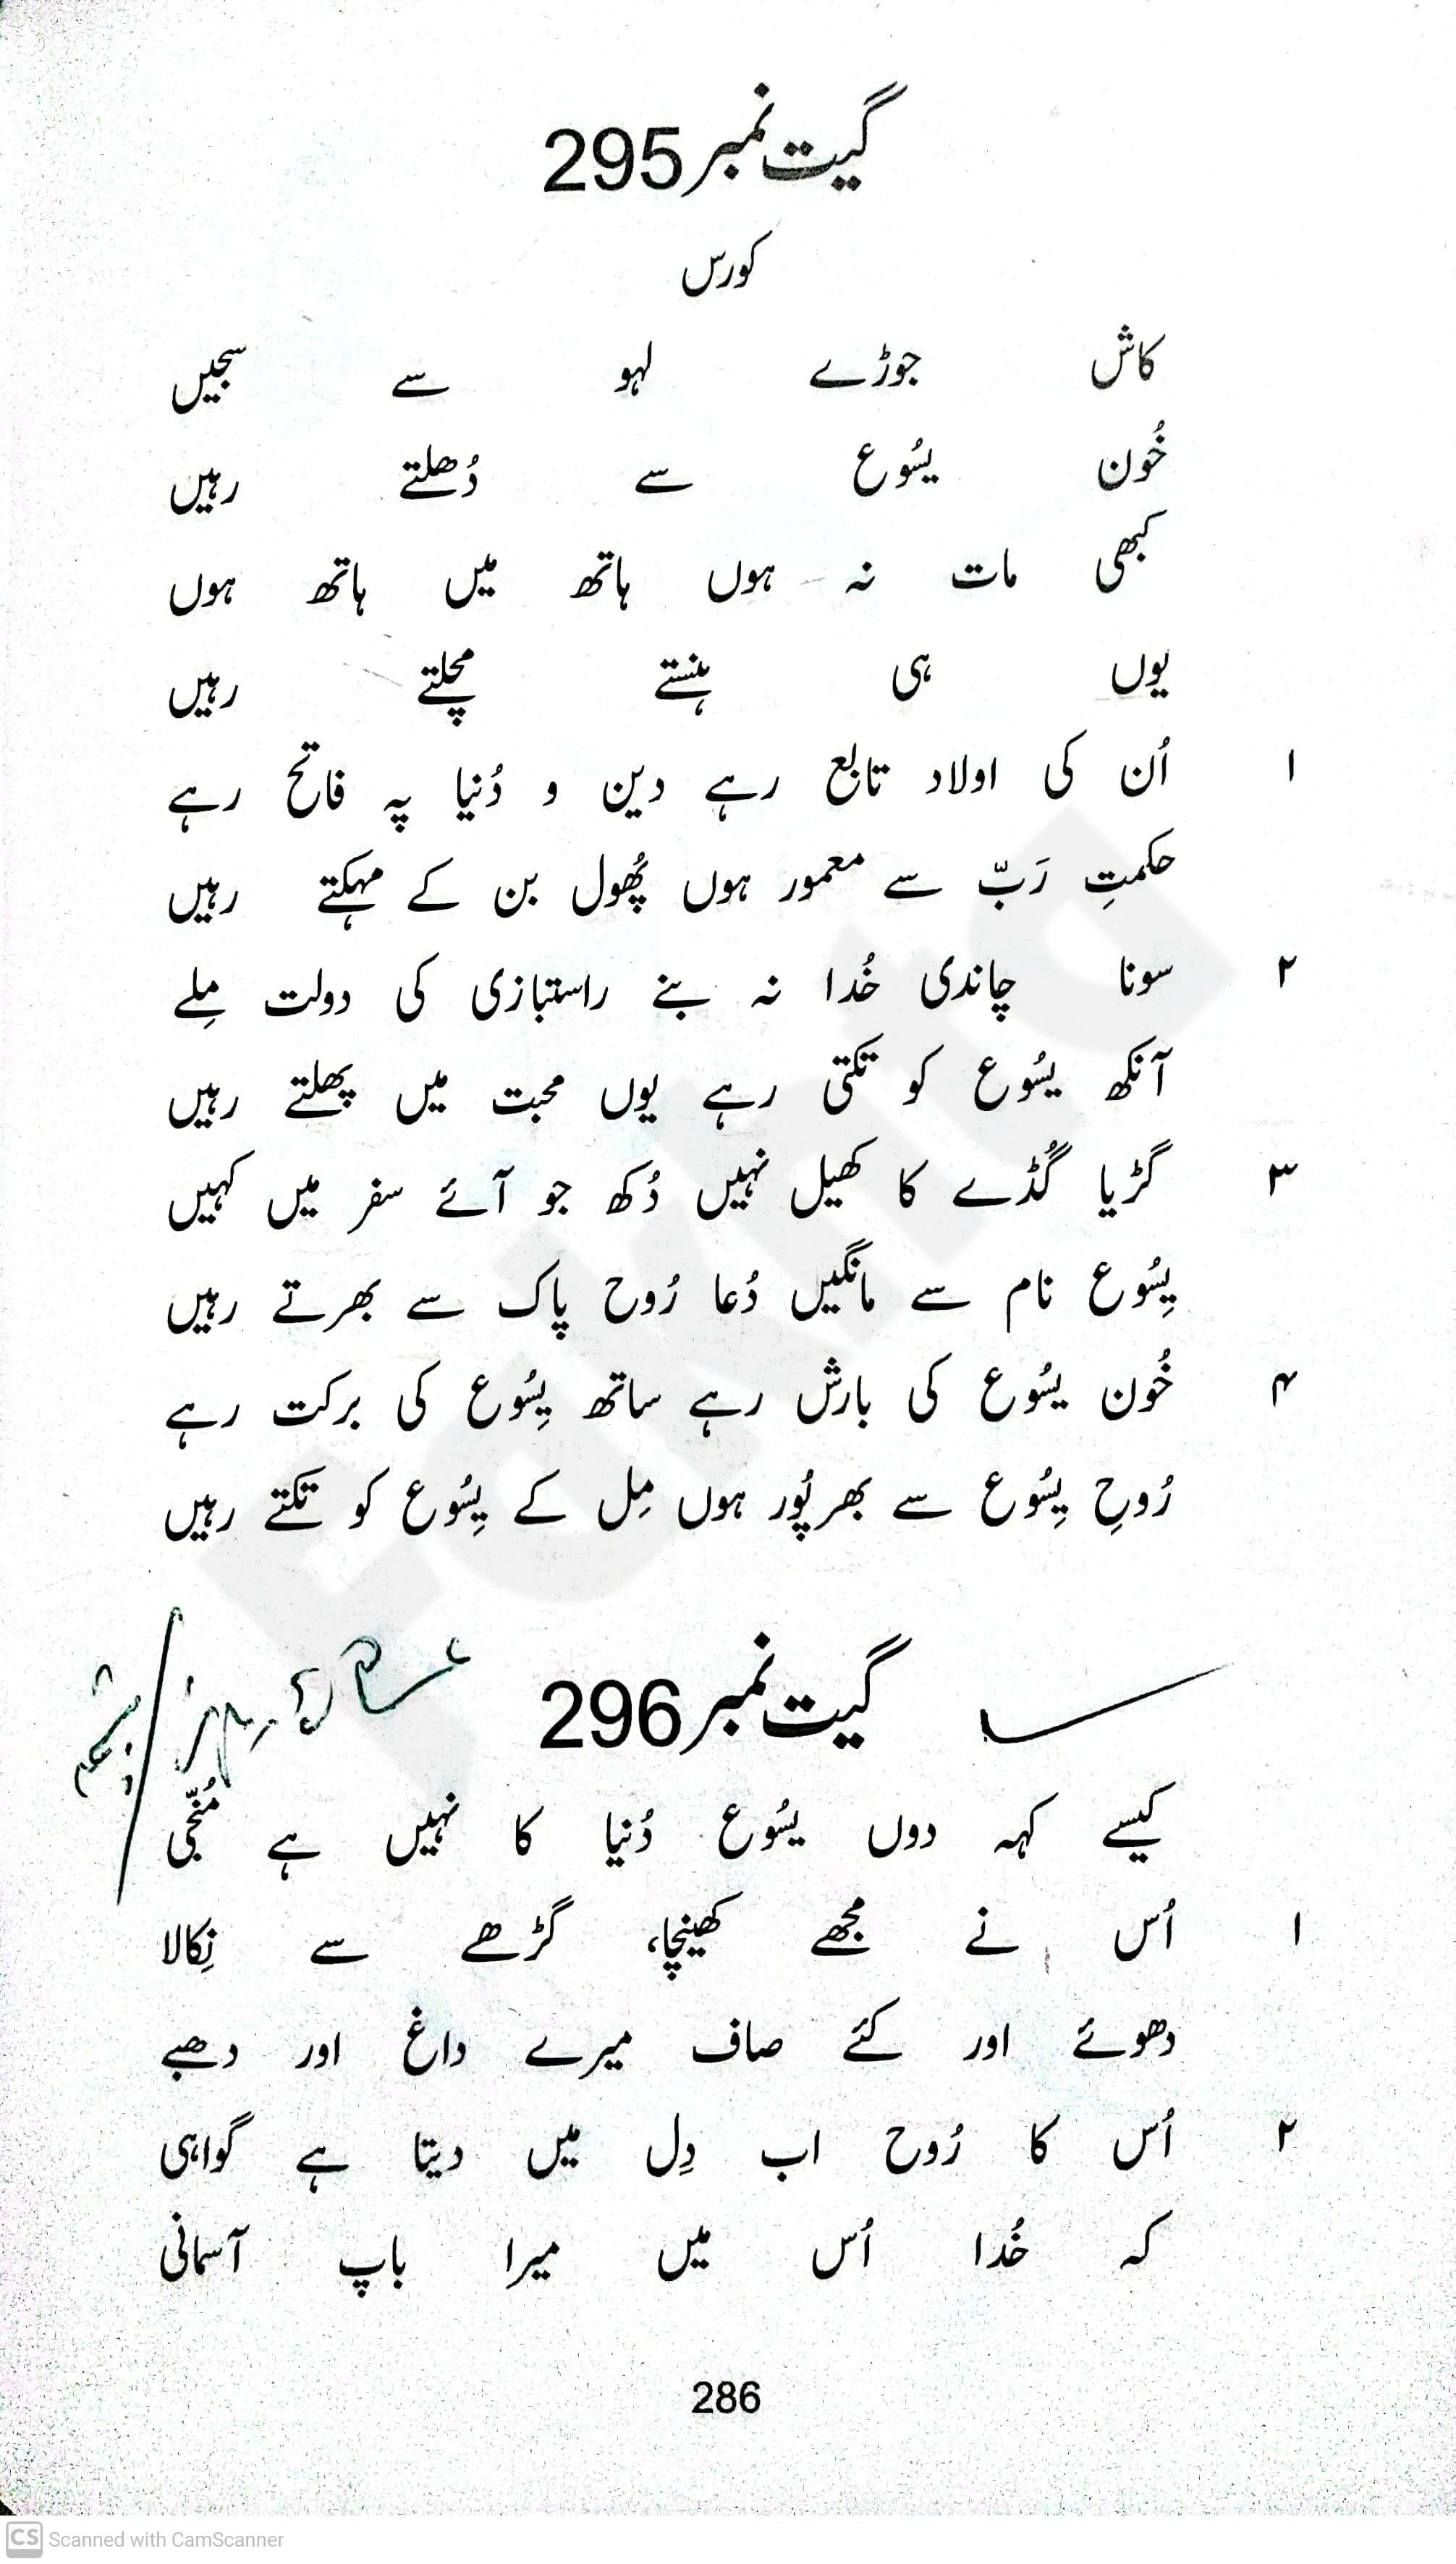 گیت نمبر 295
کورس
کاش جوڑے لہو سے سجیں
خُون یسُوع سے دُھلتے رہیں
کبھی مات نہ ہوں ہاتھ میں ہاتھ ہوں
یوں ہی ہنستے مچلتے رہیں
۱ اُن کی اولاد تابع رہے دین و دُنیا پہ فاتح رہے
حکمتِ رَبّ سے معمور ہوں پُھول بن کے مہکتے رہیں
۲ سونا چاندی خُدا نہ بنے راستبازی کی دولت مِلے
آنکھ یسُوع کو تکتی رہے یوں محبت میں پھلتے رہیں
۳ گڑیا گُڈے کا کھیل نہیں دُکھ جو آئے سفر میں کہیں
یِسُوع نام سے مانگیں دُعا رُوح پاک سے بھرتے رہیں
۴ خُون یسُوع کی بارش رہے ساتھ یِسُوع کی برکت رہے
رُوحِ یِسُوع سے بھرپُور ہوں مِل کے یِسُوع کو تکتے رہیں
گیت نمبر 296
کیسے کہہ دوں یسُوع دُنیا کا نہیں ہے مُنجّی
۱ اُس نے مجھے کھینچا، گڑھے سے نِکالا
دھوئے اور کئے صاف میرے داغ اور دھبے
۲ اُس کا رُوح اب دِل میں دیتا ہے گواہی
کہ خُدا اُس میں میرا باپ آسمانی
286
CS Scanned with CamScanner